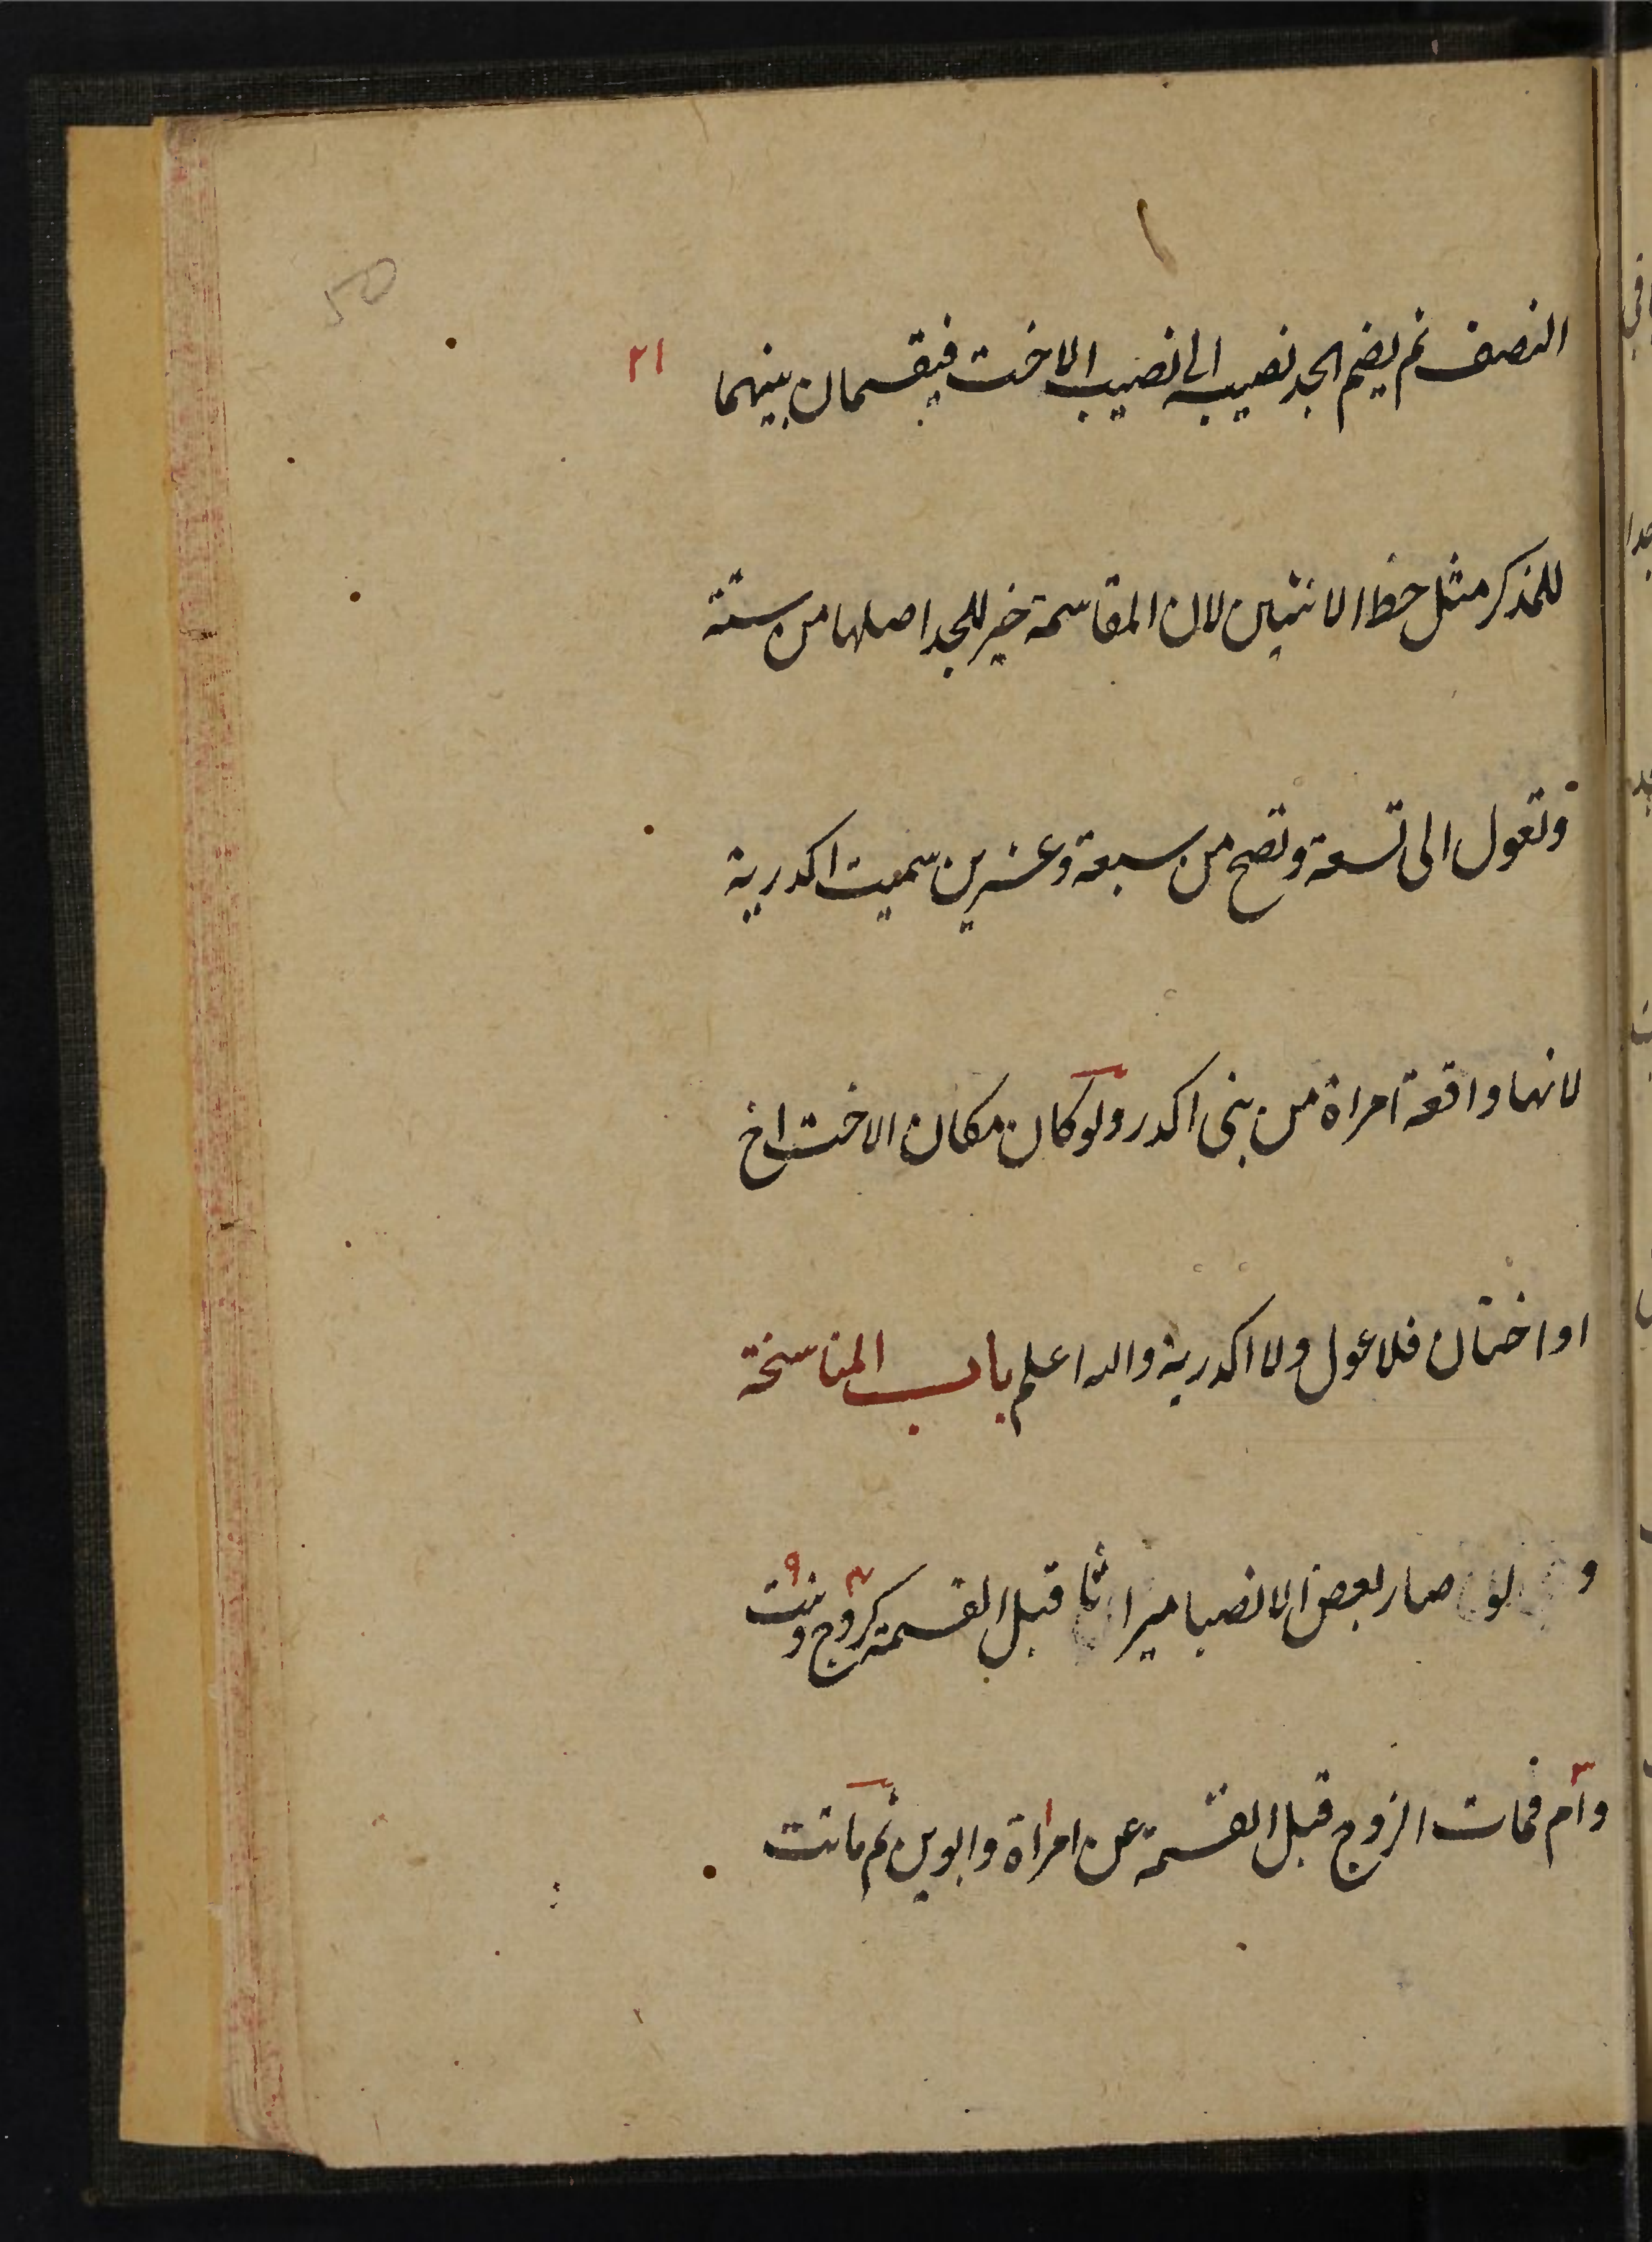 50
النصف ثم يضم الجد نصيبه الى نصيب الاخت فيقسمان بينهما ٢١
للذكر مثل حظ الانثيين لان المقاسمة خير للجد اصلها من ستة
وتعول الى تسعة وتصح من سبعة وعشرين سميت اكدرية
لانها واقعة امراة من بنى اكدر ولو كان مكان الاخت اخ
او اختان فلا عول ولا اكدرية والله اعلم باب المناسخة
ولو صار بعض الانصبا ميراثا قبل القسمة كزوج وبنت
وام فمات الزوج قبل القسمة عن امراة وابوين ثم ماتت